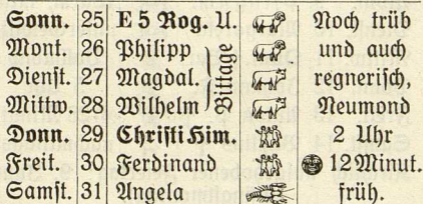 Sonn. 25 E 5 Rog. U. Noch trüb
Mont. 26 Philipp und auch
Dienst. 27 Magdal. Bittage regnerisch,
Mittw. 28 Wilhelm Neumond
Donn. 29 Christi Him. 2 Uhr
Freit. 30 Ferdinand 12 Minut.
Samst. 31 Angela früh.